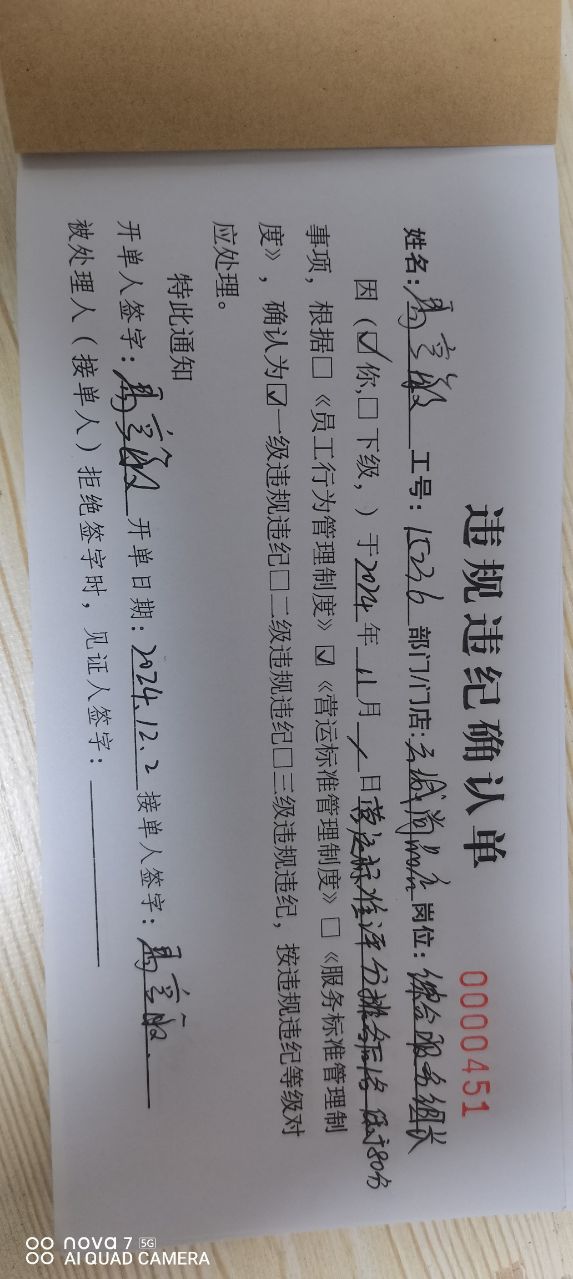 违规违纪确认单
0000451
姓名: 工号: 15236 部门/门店: 岗位: 综合服务组长
因(☑你,☐下级,)于2024年11月/日营运标准评分排名后10 低于80分
事项,根据☐《员工行为管理制度》☑《营运标准管理制度》☐《服务标准管理制
度》,确认为☑一级违规违纪☐二级违规违纪☐三级违规违纪,按违规违纪等级对
应处理。
特此通知
开单人签字: 开单日期: 2024.12.2 接单人签字:
被处理人(接单人)拒绝签字时,见证人签字:
nova 7 5G
AI QUAD CAMERA